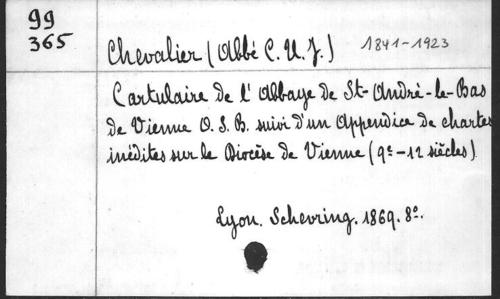 99
365
Chevalier (Abbé C. U. J.) 1841-1923
Cartulaire de l'Abbaye de St-André-le-Bas
de Vienne O. S. B. suivi d'un Appendice de chartes
inédites sur le Diocèse de Vienne (9e-12 siècles)
Lyon. Schevring. 1869. 8o.